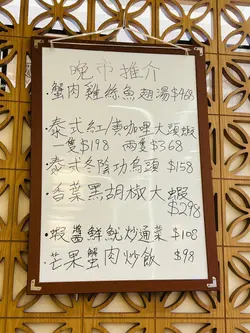 晚市推介
·蟹肉雞絲魚翅湯$468
·泰式紅/黃咖喱大頭蝦
一隻$198 兩隻$368
·泰式冬陰功烏頭 $158
·香葉黑胡椒大蝦
$298
·蝦醬鮮魷炒通菜 $108
·芒果蟹肉炒飯 $98